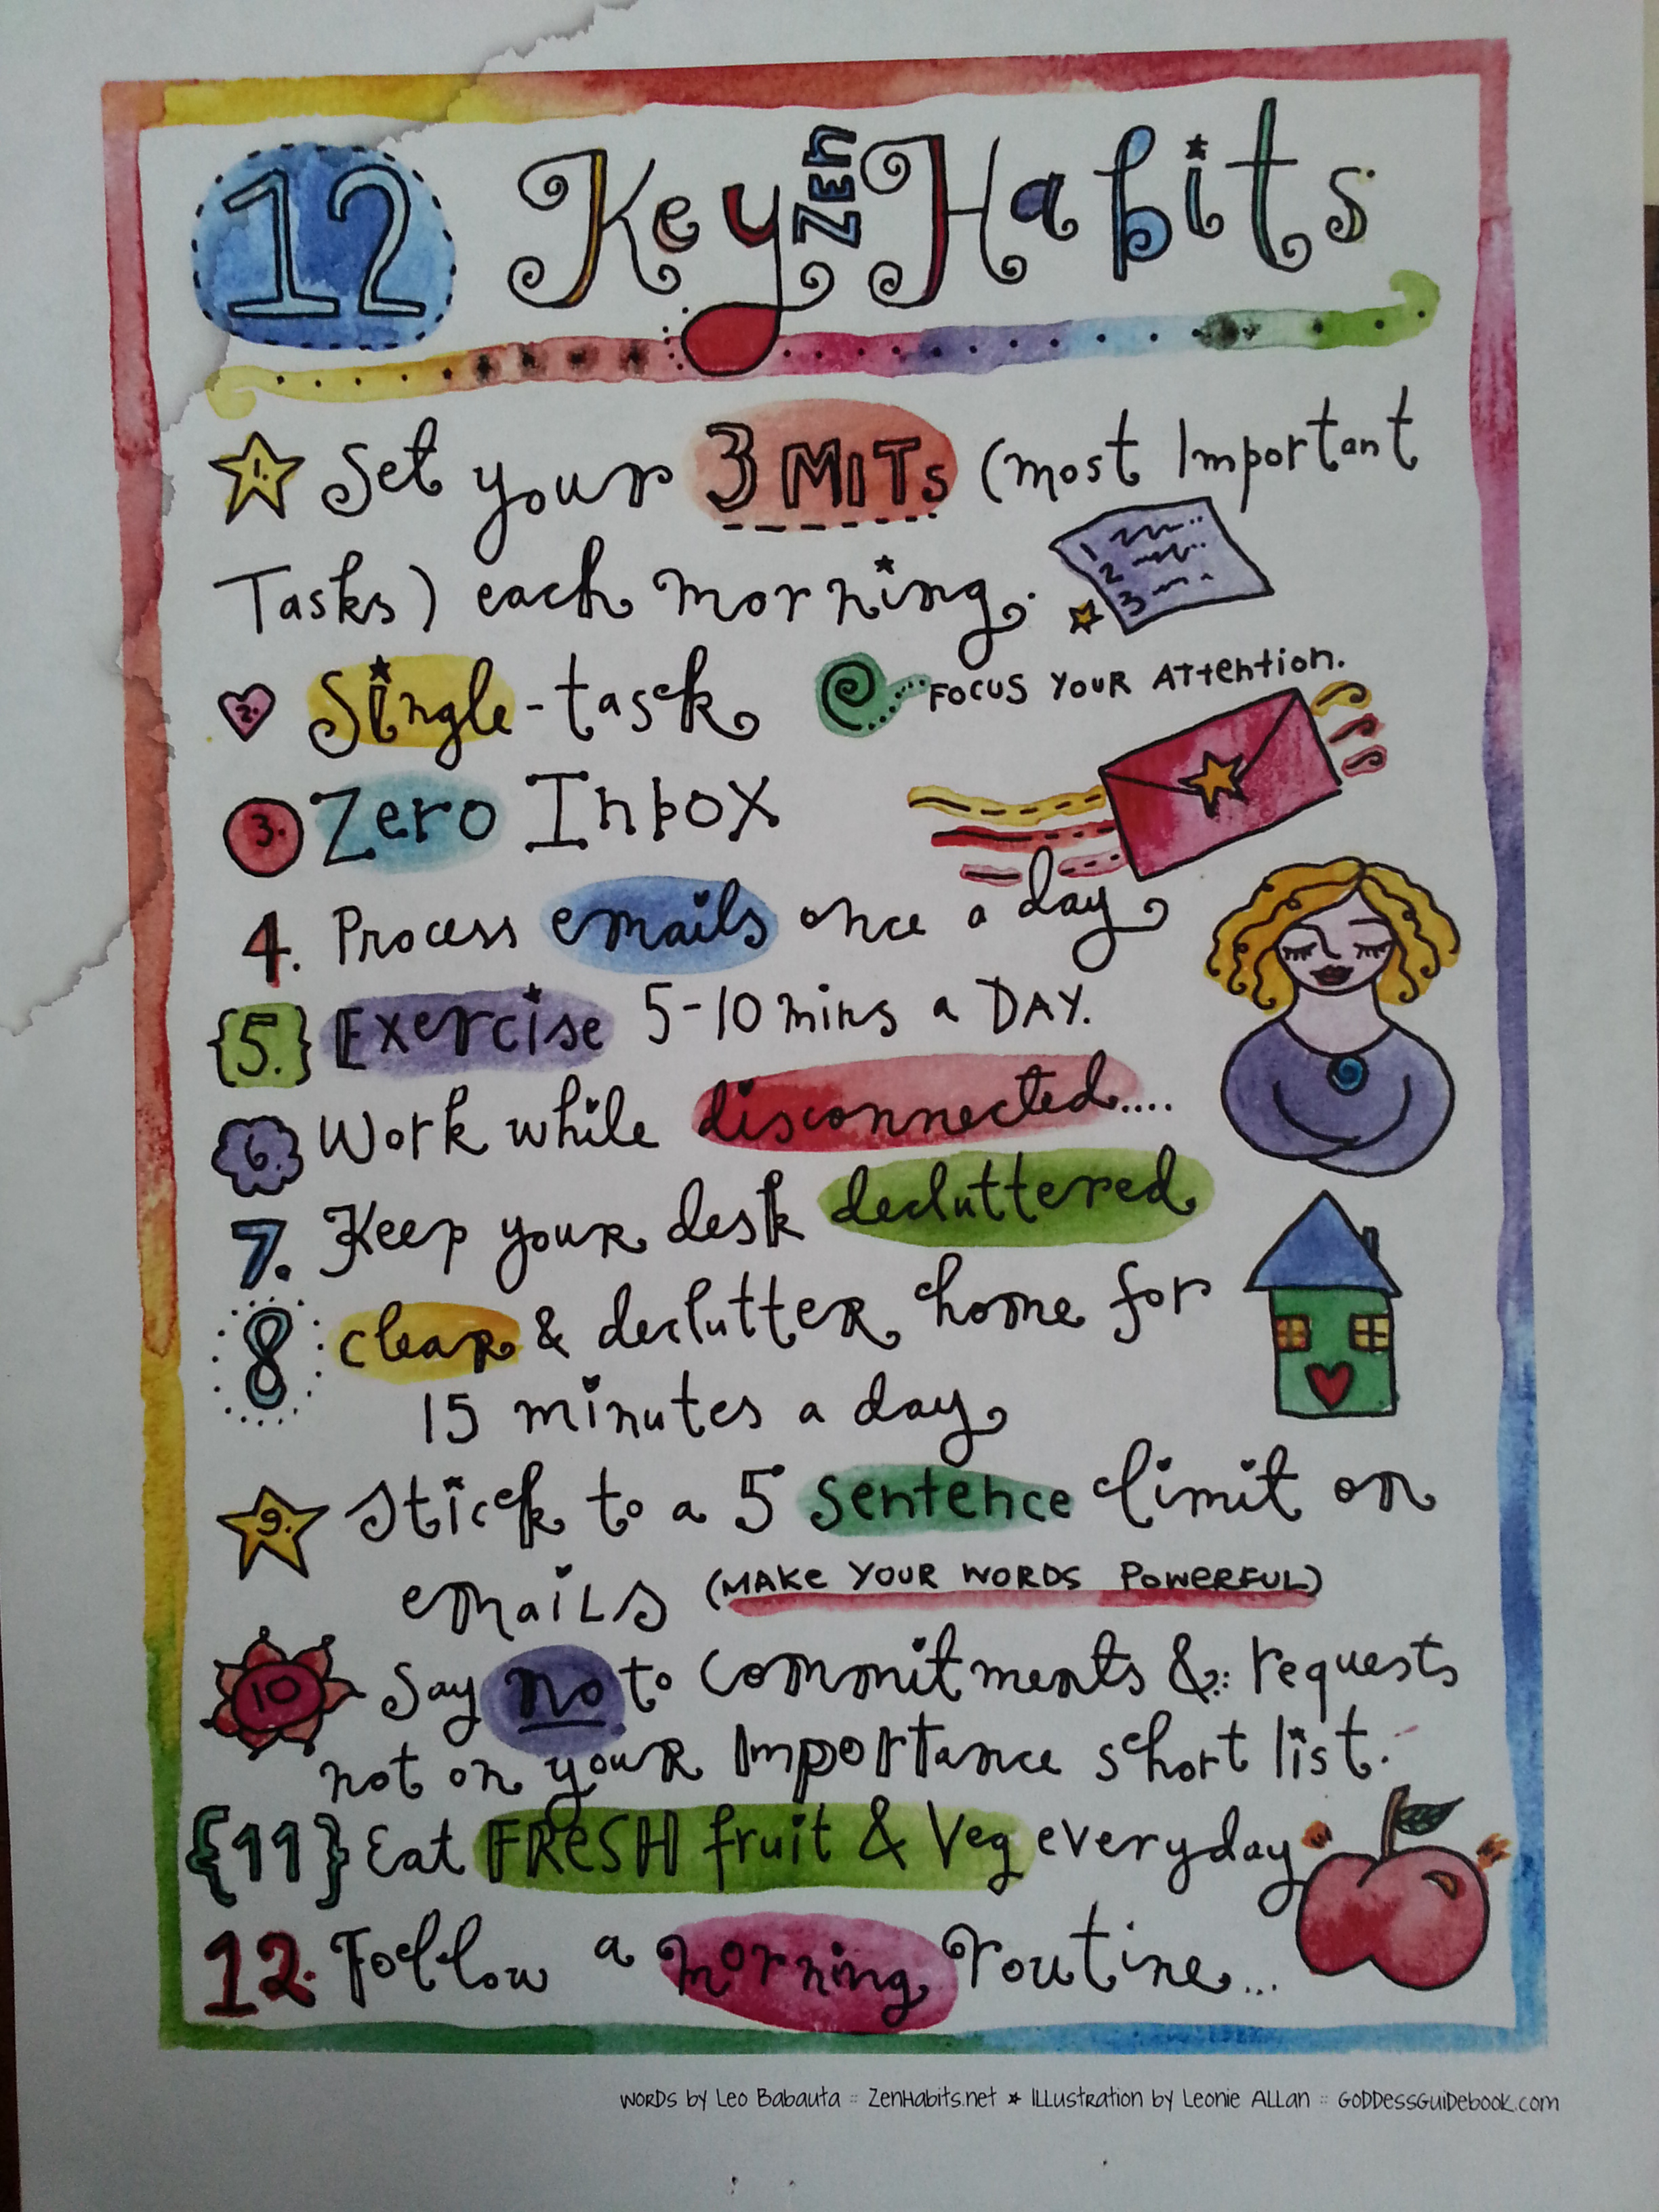 12 Key Zen Habits
1. Set your 3 MITs (most Important
Tasks) each morning.
1
2
3
2. Single-task
FOCUS YOUR Attention.
3. Zero Inbox
4. Process emails once a day
{5.} Exercise 5-10 mins a DAY.
6. Work while disconnected....
7. Keep your desk decluttered
8 clean & declutter home for
15 minutes a day
9. Stick to a 5 sentence limit on
emails (MAKe YOUR WORDS POWERFUL)
10 Say no to commitments & requests
not on your Importance short list.
{11} Eat FReSH fruit & Veg everyday
12. Follow a morning routine...
Words by Leo Babauta :: ZenHabits.net ★ Illustration by Leonie Allan :: GoddessGuidebook.com